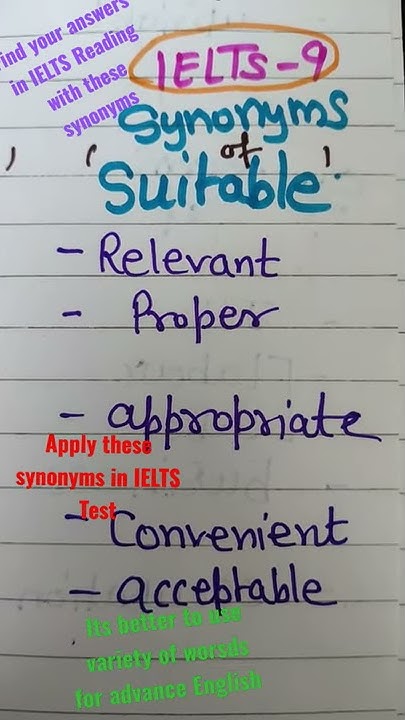 find your answers
in IELTS Reading
with these
synonyms
IELTS-9
Synonyms
of
'Suitable'
- Relevant
- Proper
- appropriate
Apply these
synonyms in IELTS
Test
- Convenient
- acceptable
Its better to use
variety of worsds
for advance English